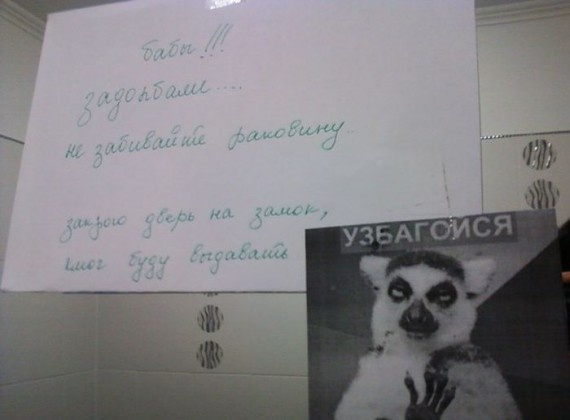 бабы!!!
задолбали....
не забивайте раковину
закрою дверь на замок,
ключ буду выдавать
УЗБАГОЙСЯ